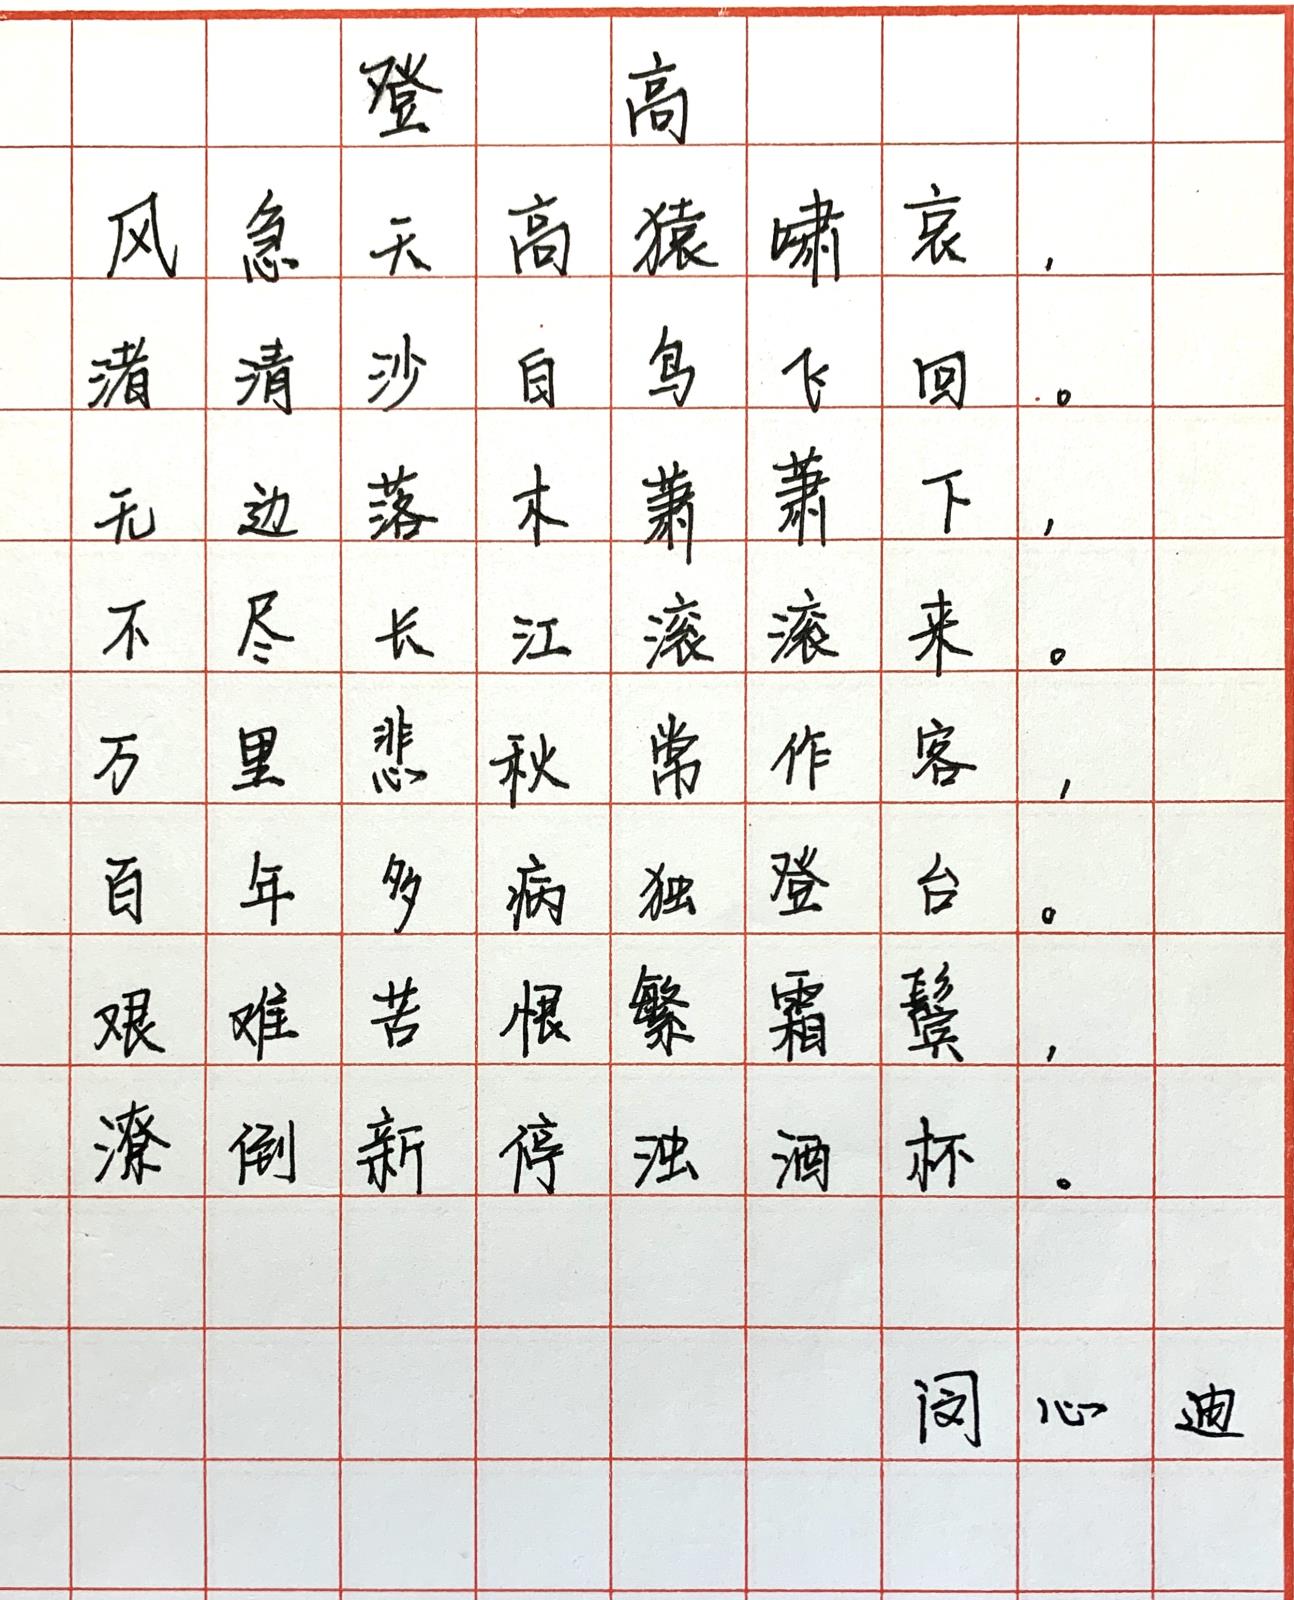 登高
风急天高猿啸哀，
渚清沙白鸟飞回。
无边落木萧萧下，
不尽长江滚滚来。
万里悲秋常作客，
百年多病独登台。
艰难苦恨繁霜鬓，
潦倒新停浊酒杯。
闵心迪